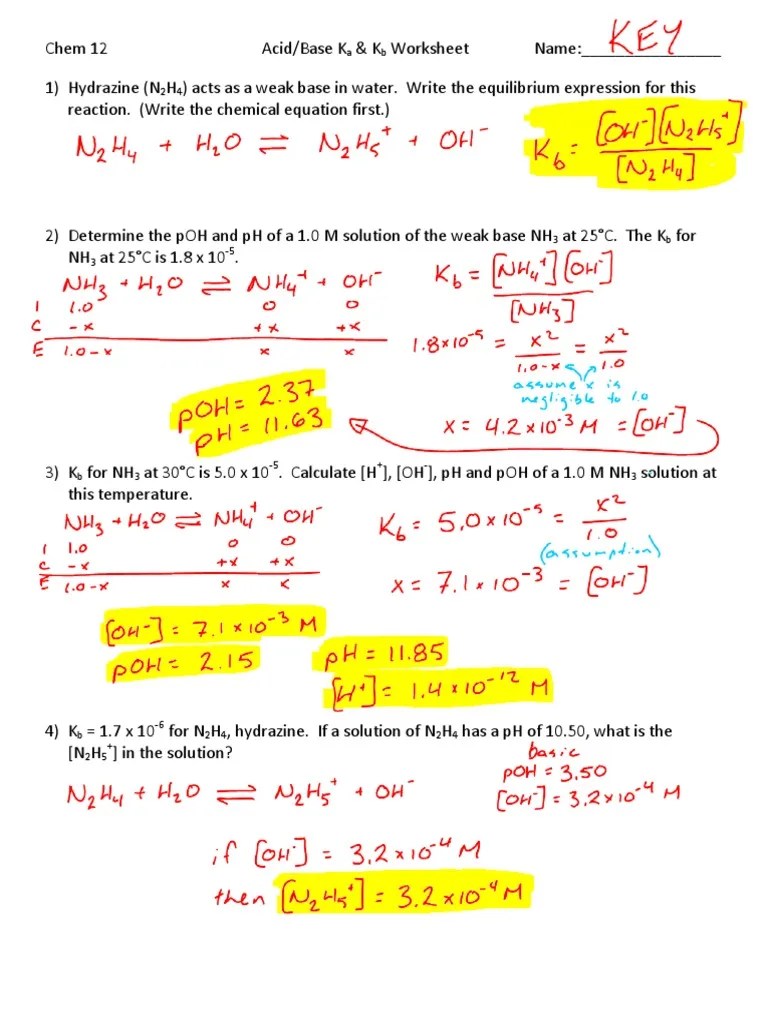 Chem 12 Acid/Base Kₐ & K_b Worksheet Name:________________ KEY
1) Hydrazine (N₂H₄) acts as a weak base in water. Write the equilibrium expression for this
reaction. (Write the chemical equation first.)
N₂H₄ + H₂O ⇌ N₂H₅⁺ + OH⁻ K_b = [OH⁻][N₂H₅⁺] / [N₂H₄]
2) Determine the pOH and pH of a 1.0 M solution of the weak base NH₃ at 25°C. The K_b for
NH₃ at 25°C is 1.8 x 10⁻⁵.
NH₃ + H₂O ⇌ NH₄⁺ + OH⁻
I 1.0 0 0
C -x +x +x
E 1.0-x x x
K_b = [NH₄⁺][OH⁻] / [NH₃]
1.8x10⁻⁵ = x² / 1.0-x = x² / 1.0
assume x is
negligible to 1.0
x = 4.2x10⁻³ M = [OH⁻]
pOH = 2.37
pH = 11.63
3) K_b for NH₃ at 30°C is 5.0 x 10⁻⁵. Calculate [H⁺], [OH⁻], pH and pOH of a 1.0 M NH₃ solution at
this temperature.
NH₃ + H₂O ⇌ NH₄⁺ + OH⁻
I 1.0 0 0
C -x +x +x
E 1.0-x x x
K_b = 5.0x10⁻⁵ = x² / 1.0
(assumption)
x = 7.1x10⁻³ = [OH⁻]
[OH⁻] = 7.1x10⁻³ M
pOH = 2.15
pH = 11.85
[H⁺] = 1.4x10⁻¹² M
4) K_b = 1.7 x 10⁻⁶ for N₂H₄, hydrazine. If a solution of N₂H₄ has a pH of 10.50, what is the
[N₂H₅⁺] in the solution?
basic
pOH = 3.50
[OH⁻] = 3.2x10⁻⁴ M
N₂H₄ + H₂O ⇌ N₂H₅⁺ + OH⁻
if [OH⁻] = 3.2x10⁻⁴ M
then [N₂H₅⁺] = 3.2x10⁻⁴ M